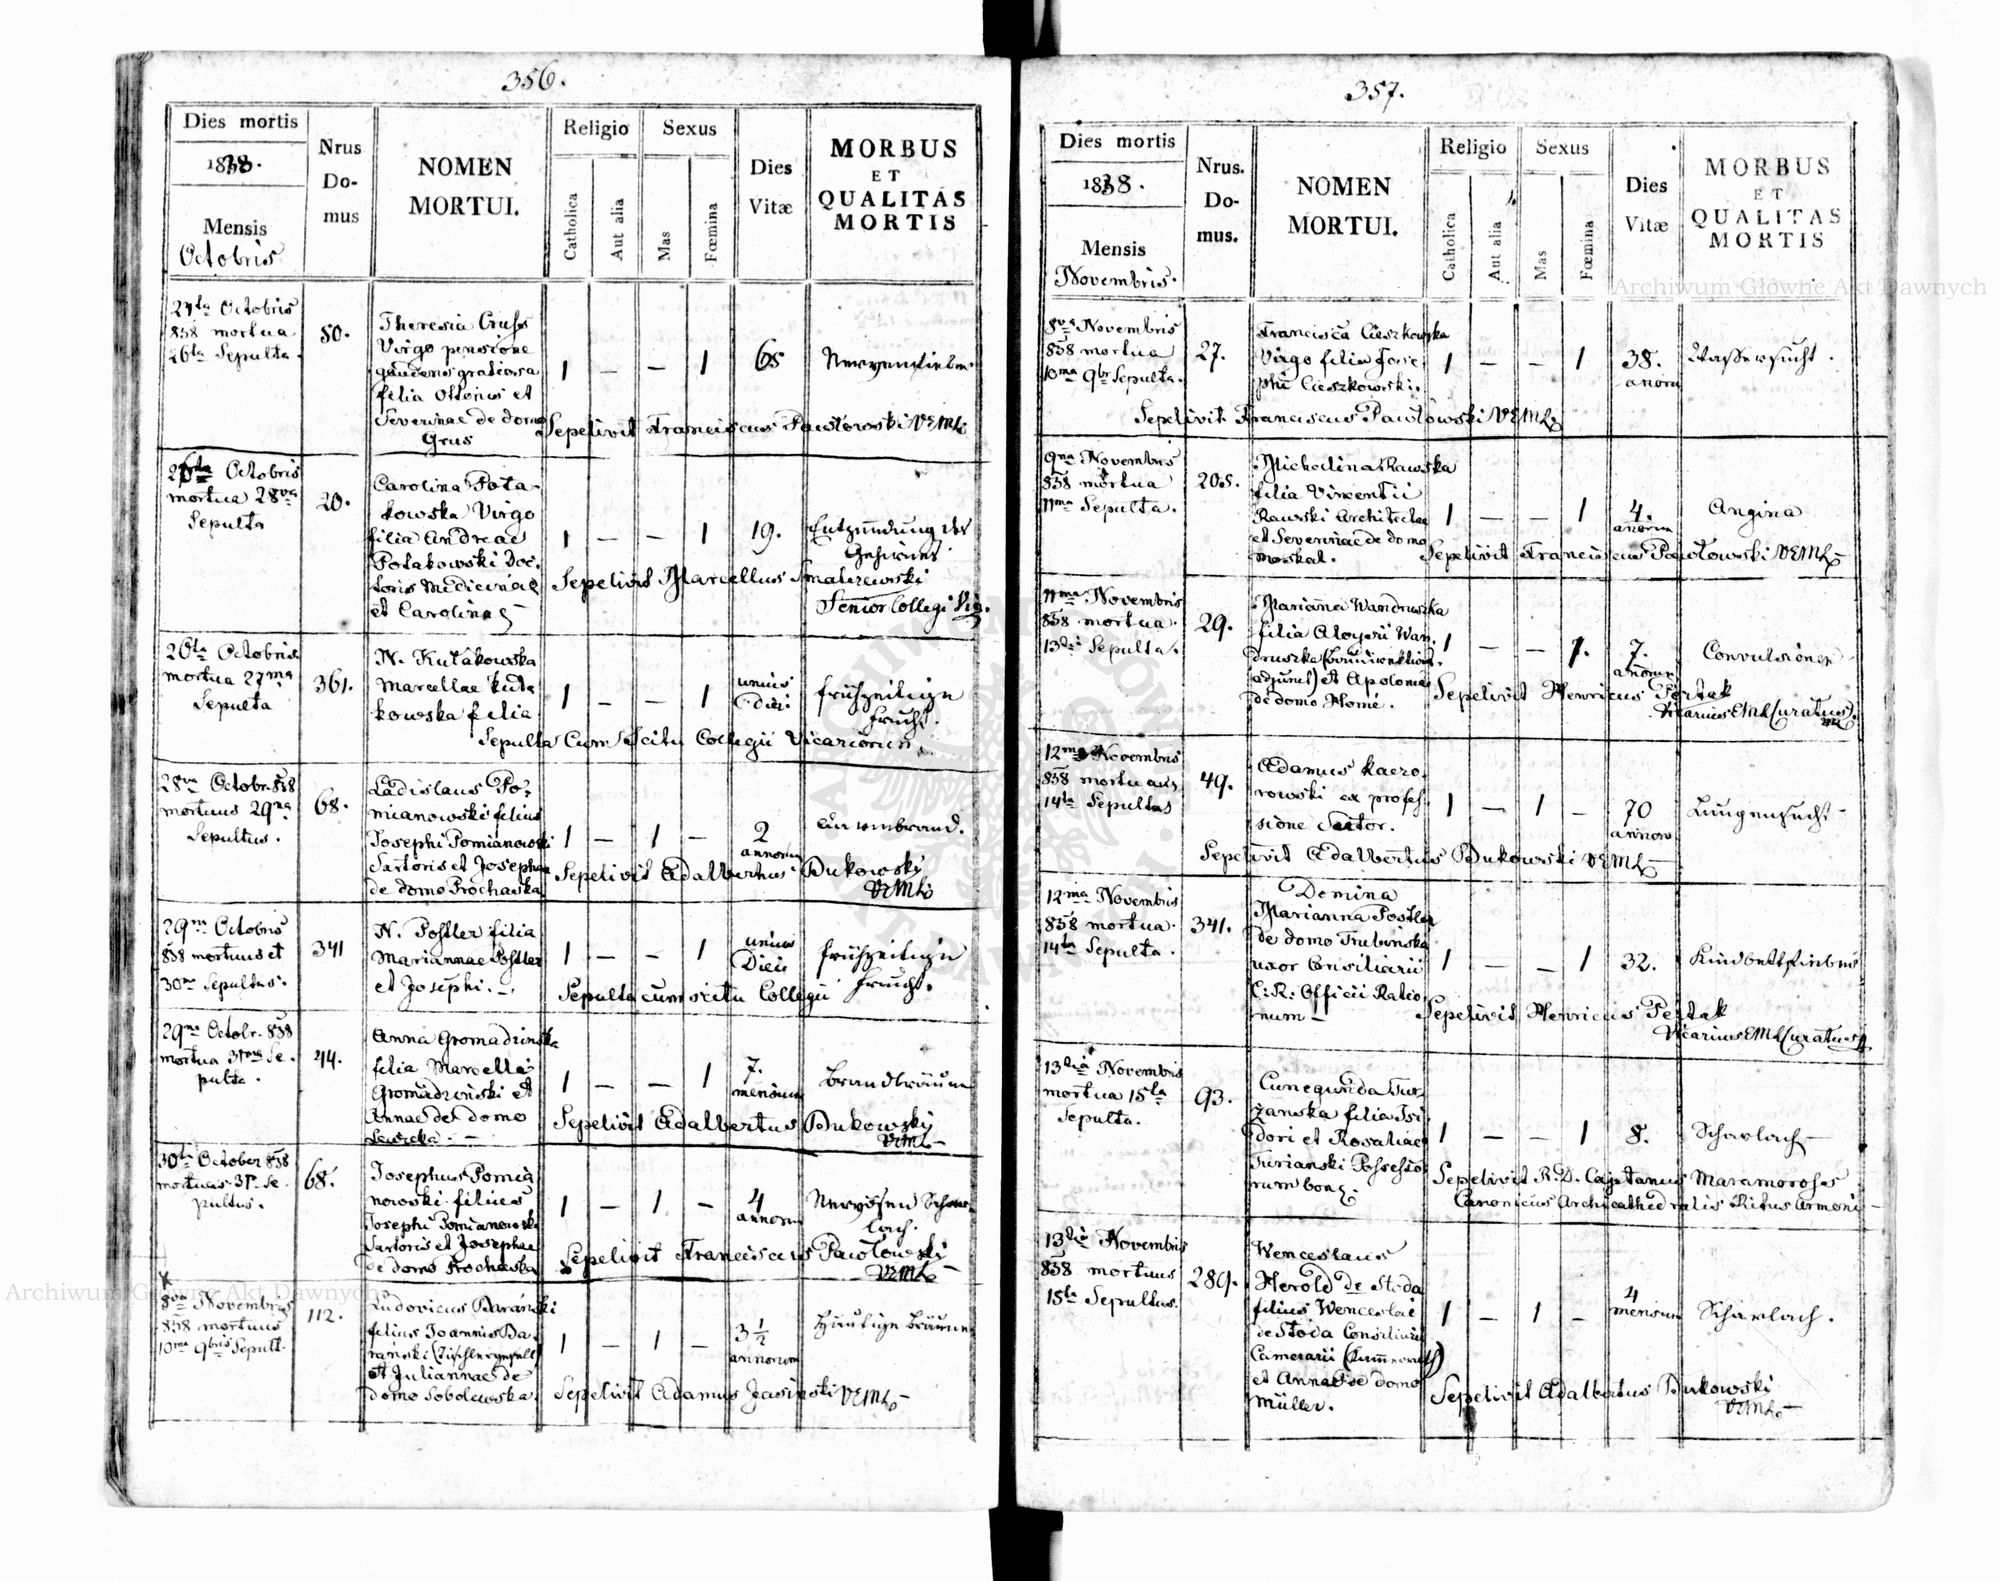 356.
Dies mortis
1838.
Mensis
Octobris
Nrus
Do-
mus
NOMEN
MORTUI.
Religio
Catholica
Aut alia
Sexus
Mas
Fœmina
Dies
Vitæ
MORBUS
ET
QUALITAS
MORTIS
24ta Octobris
838 mortua
26ta Sepulta.
50.
Theresia
Virgo pensione
gaudens gratiosa
filia Ottonis et
Severinae de domo
Grus
1 — — 1
65
Nervenfieber
Sepelivit Franciscus Pawłowski VEML
26ta Octobris
mortua 28va
Sepulta
20.
Carolina Pota-
kowska Virgo
filia Andreae
Potakowski Doc-
toris Medicinae
et Carolinae
1 — — 1
19.
Entzündung des
Gehirnes
Sepelivit Marcellus Smalzewski
Senior Collegi Vic.
26ta Octobris
mortua 27ma
Sepulta
361.
N. Kułakowska
Marcellae Kuła
kowska filia
1 — — 1
unius
Diei
frühzeitige
Frucht.
Sepulta Cum Scitu Collegii Vicariorum
28va Octobr. 838
mortuus 29na
Sepultus.
68.
Ladislaus Po-
mianowski filius
Josephi Pomianowski
Sartoris et Josephae
de domo Prochaska
1 — 1 —
2
annorum
Sepelivit Adalbertus Bukowski
VEML
29na Octobris
838 mortuus et
30ma Sepultus.
341
N. Postler filia
Mariannae Postler
et Josephi. —
1 — — 1
unius
Diei
frühzeitige
Frucht.
Sepulta cum scitu Collegii
29na Octobr. 838
mortua 31ma Se-
pulta.
44.
Anna Gromadzinska
filia Marcelli
Gromadzinski et
Annae de domo
1 — — 1
7.
mensium
Sepelivit Adalbertus Bukowski
VEML
30ta October 838
mortuus 31. Se-
pultus.
68.
Josephus Pomia
nowski filius
Josephi Pomianowski
Sartoris et Josephae
de domo Prochaska
1 — 1 —
4
annorum
Nervösen Schar-
lach.
Sepelivit Franciscus Pawłowski
VEML
8va Novembris
838 mortuus
10ma 9bris Sepult.
112.
Ludovicus Baranski
filius Joannis Ba-
ranski (Tischlergesell)
et Juliannae de
domo Sobolewska.
1 — 1 —
3 1/2
annorum
Häutige Bräune
Sepelivit Adamus Jasinski VEML
357.
Dies mortis
1838.
Mensis
Novembris.
Nrus.
Do-
mus.
NOMEN
MORTUI.
Religio
Catholica
Aut alia
Sexus
Mas
Fœmina
Dies
Vitæ
MORBUS
ET
QUALITAS
MORTIS
8va Novembris
838 mortua
10ma 9br Sepulta.
27.
Francisca Cieszkowska
Virgo filia Jose
phi Cieszkowski.
1 — — 1
38.
annorum
Wassersucht.
Sepelivit Franciscus Pawłowski VEML
9na Novembris
838 mortua
11ma Sepulta.
205.
Michalina Rawska
filia Vincentii
Rawski Architectae
et Severinae de domo
Moskal.
1 — — 1
4.
annorum
Angina
Sepelivit Franciscus Pawłowski VEML
11ma Novembris
838 mortua.
13tia Sepulta.
29.
Marianna Wandruszka
filia Aloysii Wan-
druszka (Baudirektions
adjunct) et Apolonia
de domo Homé.
1 — — 1.
7.
annorum
Convulsionen
Sepelivit Henricus Pertak
Vicarius EML Curatus
12ma Novembris
838 mortuus
14ta Sepultus
49.
Adamus Kaczo-
rowski ex profes-
sione Sutor.
1 — 1 —
70
annorum
Lungensucht
Sepelivit Adalbertus Bukowski VEML
12ma Novembris
838 mortua.
14ta Sepulta.
341.
Domina
Marianna Postler
de domo Trubinska
uxor Consiliarii
C: R: Officii Ratio
num —
1 — — 1
32.
Kindbettfieber
Sepelivit Henricus Pertak
Vicarius EML Curatus
13tia Novembris
mortua 15ta
Sepulta.
93.
Cunegunda Tur-
zanska filia Isi
dori et Rosaliae
Turianski Possesso
rum bon.
1 — — 1
8.
Scharlach
Sepelivit R. D. Cajetanus Maramorosz
Canonicus Archicathedralis Ritus Armeni
13tia Novembris
838 mortuus
15ta Sepultus.
289.
Wenceslaus
Herold de Stoda
filius Wenceslai
de Stoda Consiliarii
Camerarii (Kammerrath)
et Annae de domo
Müller.
1 — 1 —
4
mensium
Scharlach.
Sepelivit Adalbertus Bukowski
VEML
Archiwum Główne Akt Dawnych
Archiwum Główne Akt Dawnych
ARCHIWUM GŁÓWNE AKT DAWNYCH